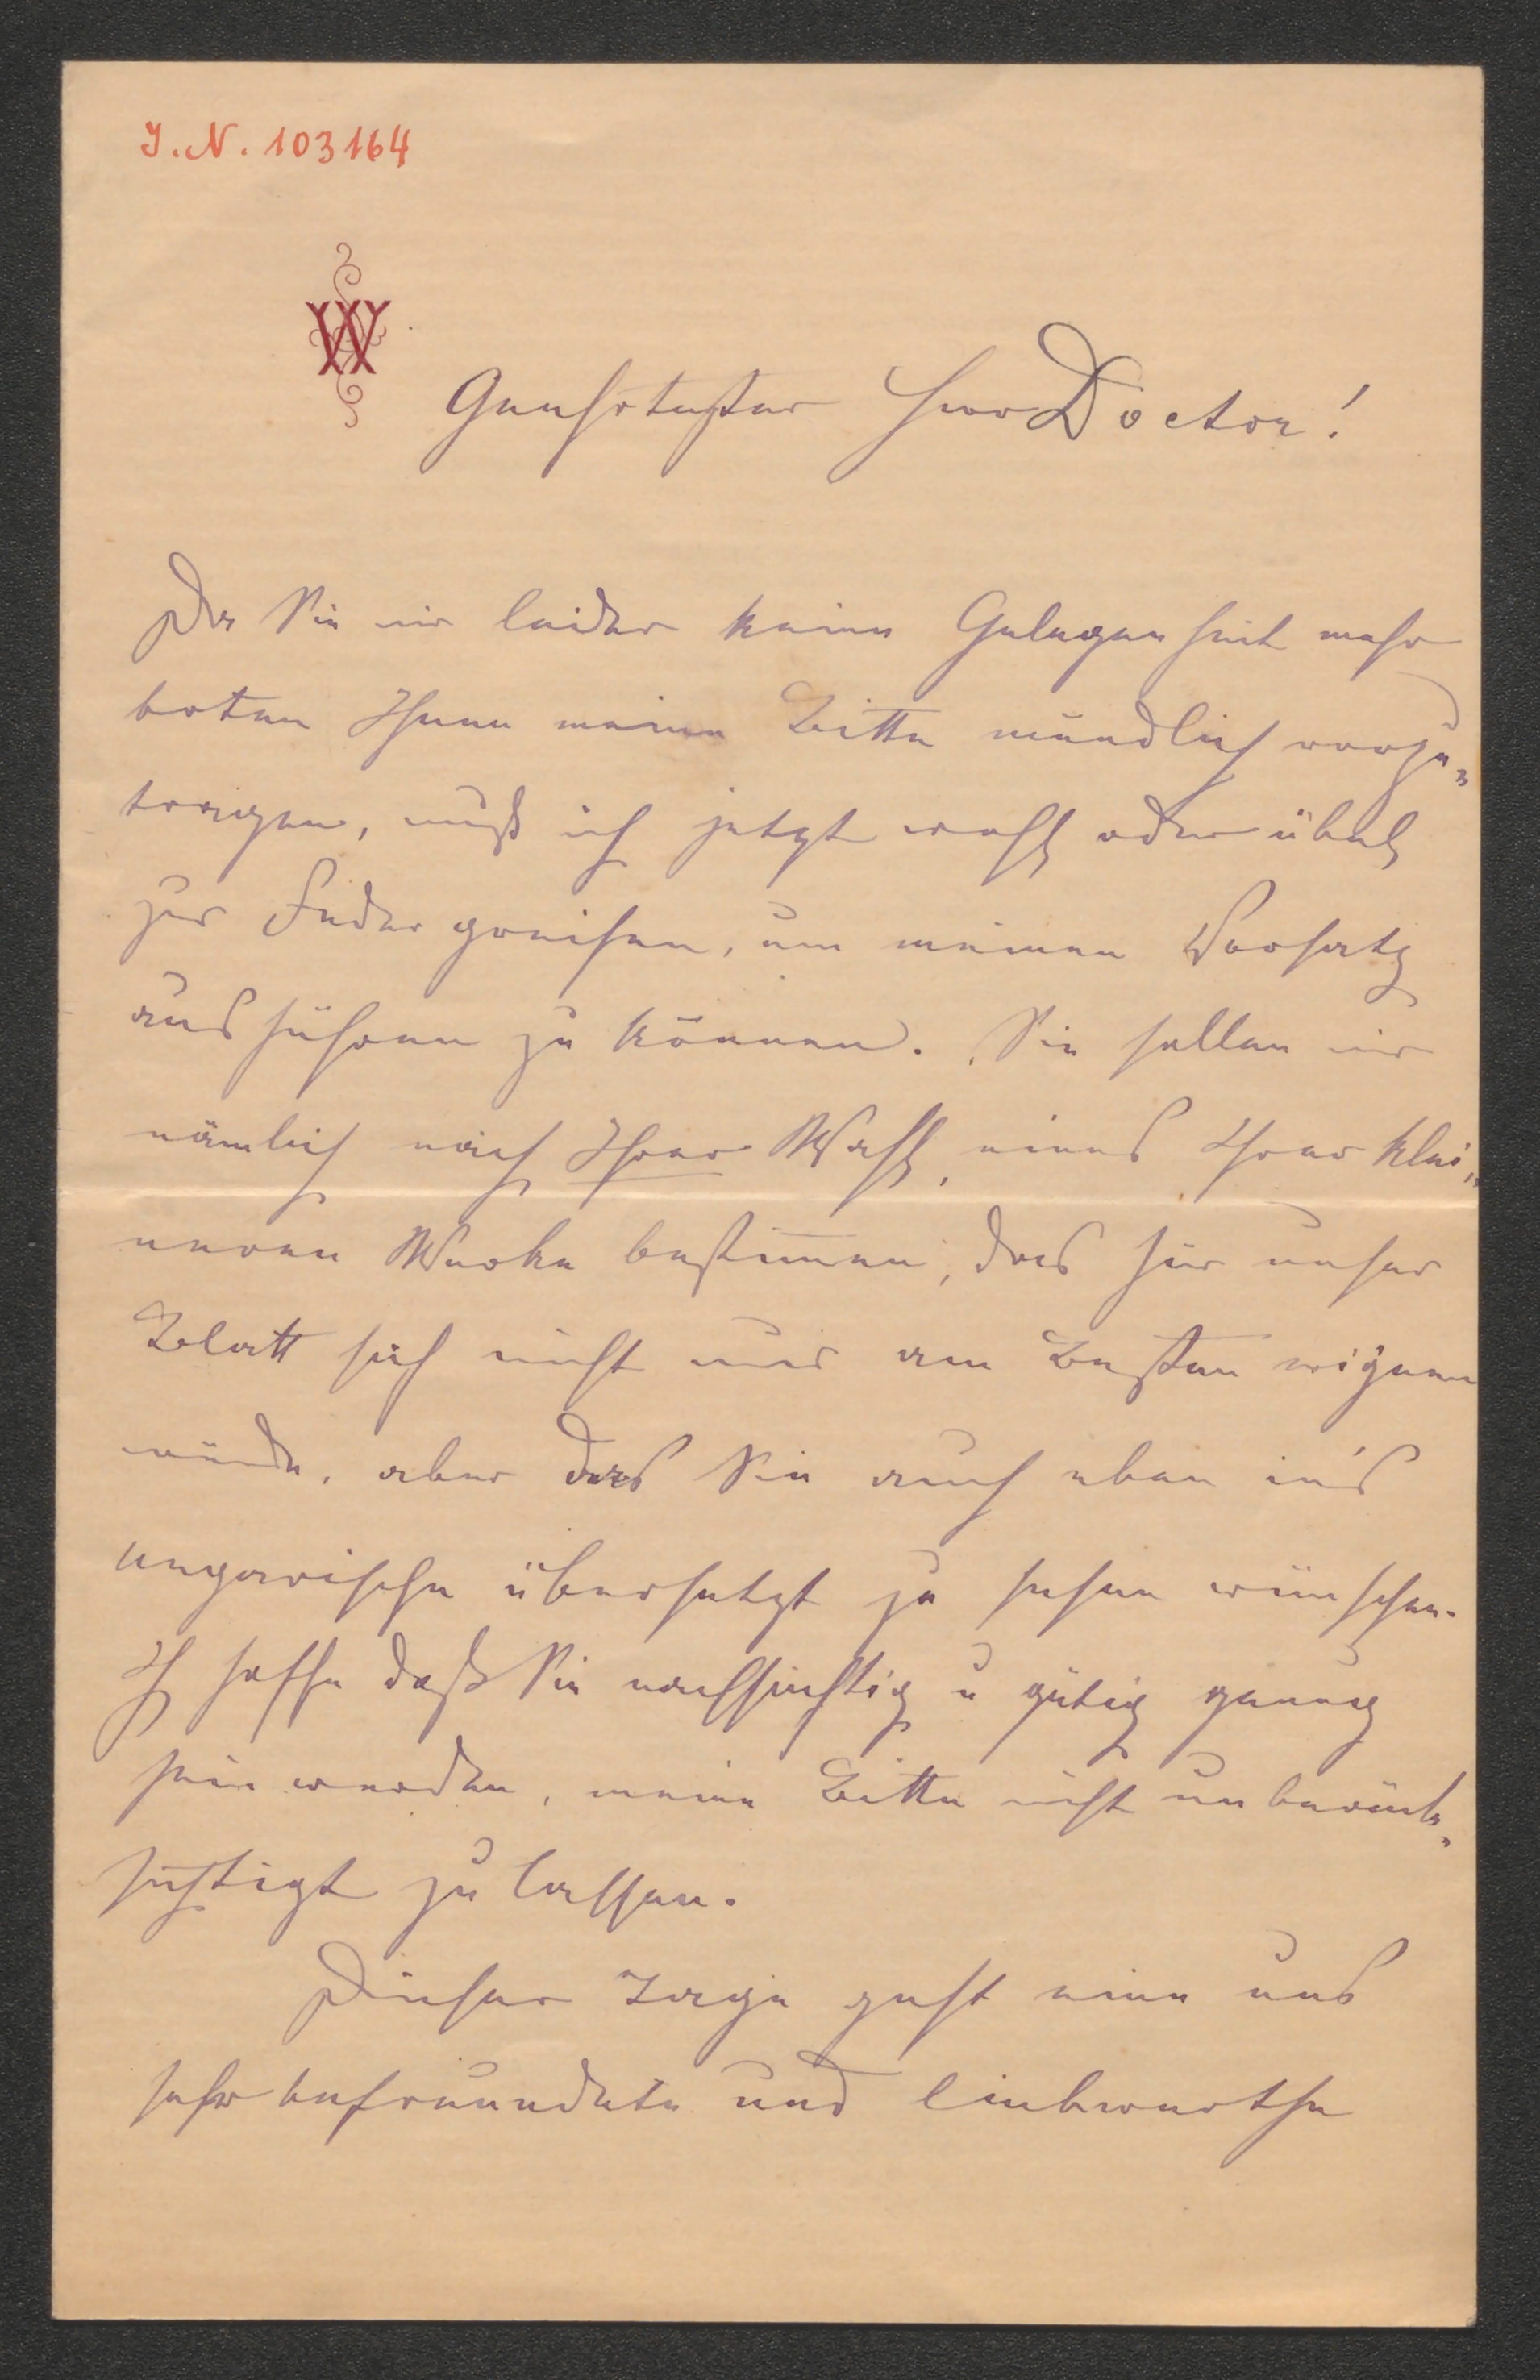 J.N. 103164
W
Geehrtester Herr Doctor!
Da Sie mir leider keine Gelegenheit mehr
boten Ihnen meine Bitte mündlich vorzu„
tragen, muß ich jetzt wohl oder übel
zur Feder greifen, um meinen Vorsatz
ausführen zu können. Sie sollen mir
nämlich nach Ihrer Wahl, eines Ihrer klei„
neren Werke bestimmen, das für unser
Blatt sich nicht nur am Besten eignen
würde, aber das Sie auch eben in's
ungarische übersetzt zu sehen wünschen.
Ich hoffe daß Sie nachsichtig u gütig genug
sein werden, meine Bitte nicht unberück„
sichtigt zu lassen.
Dieser Tage geht eine uns
sehr befreundete und liebwerthe